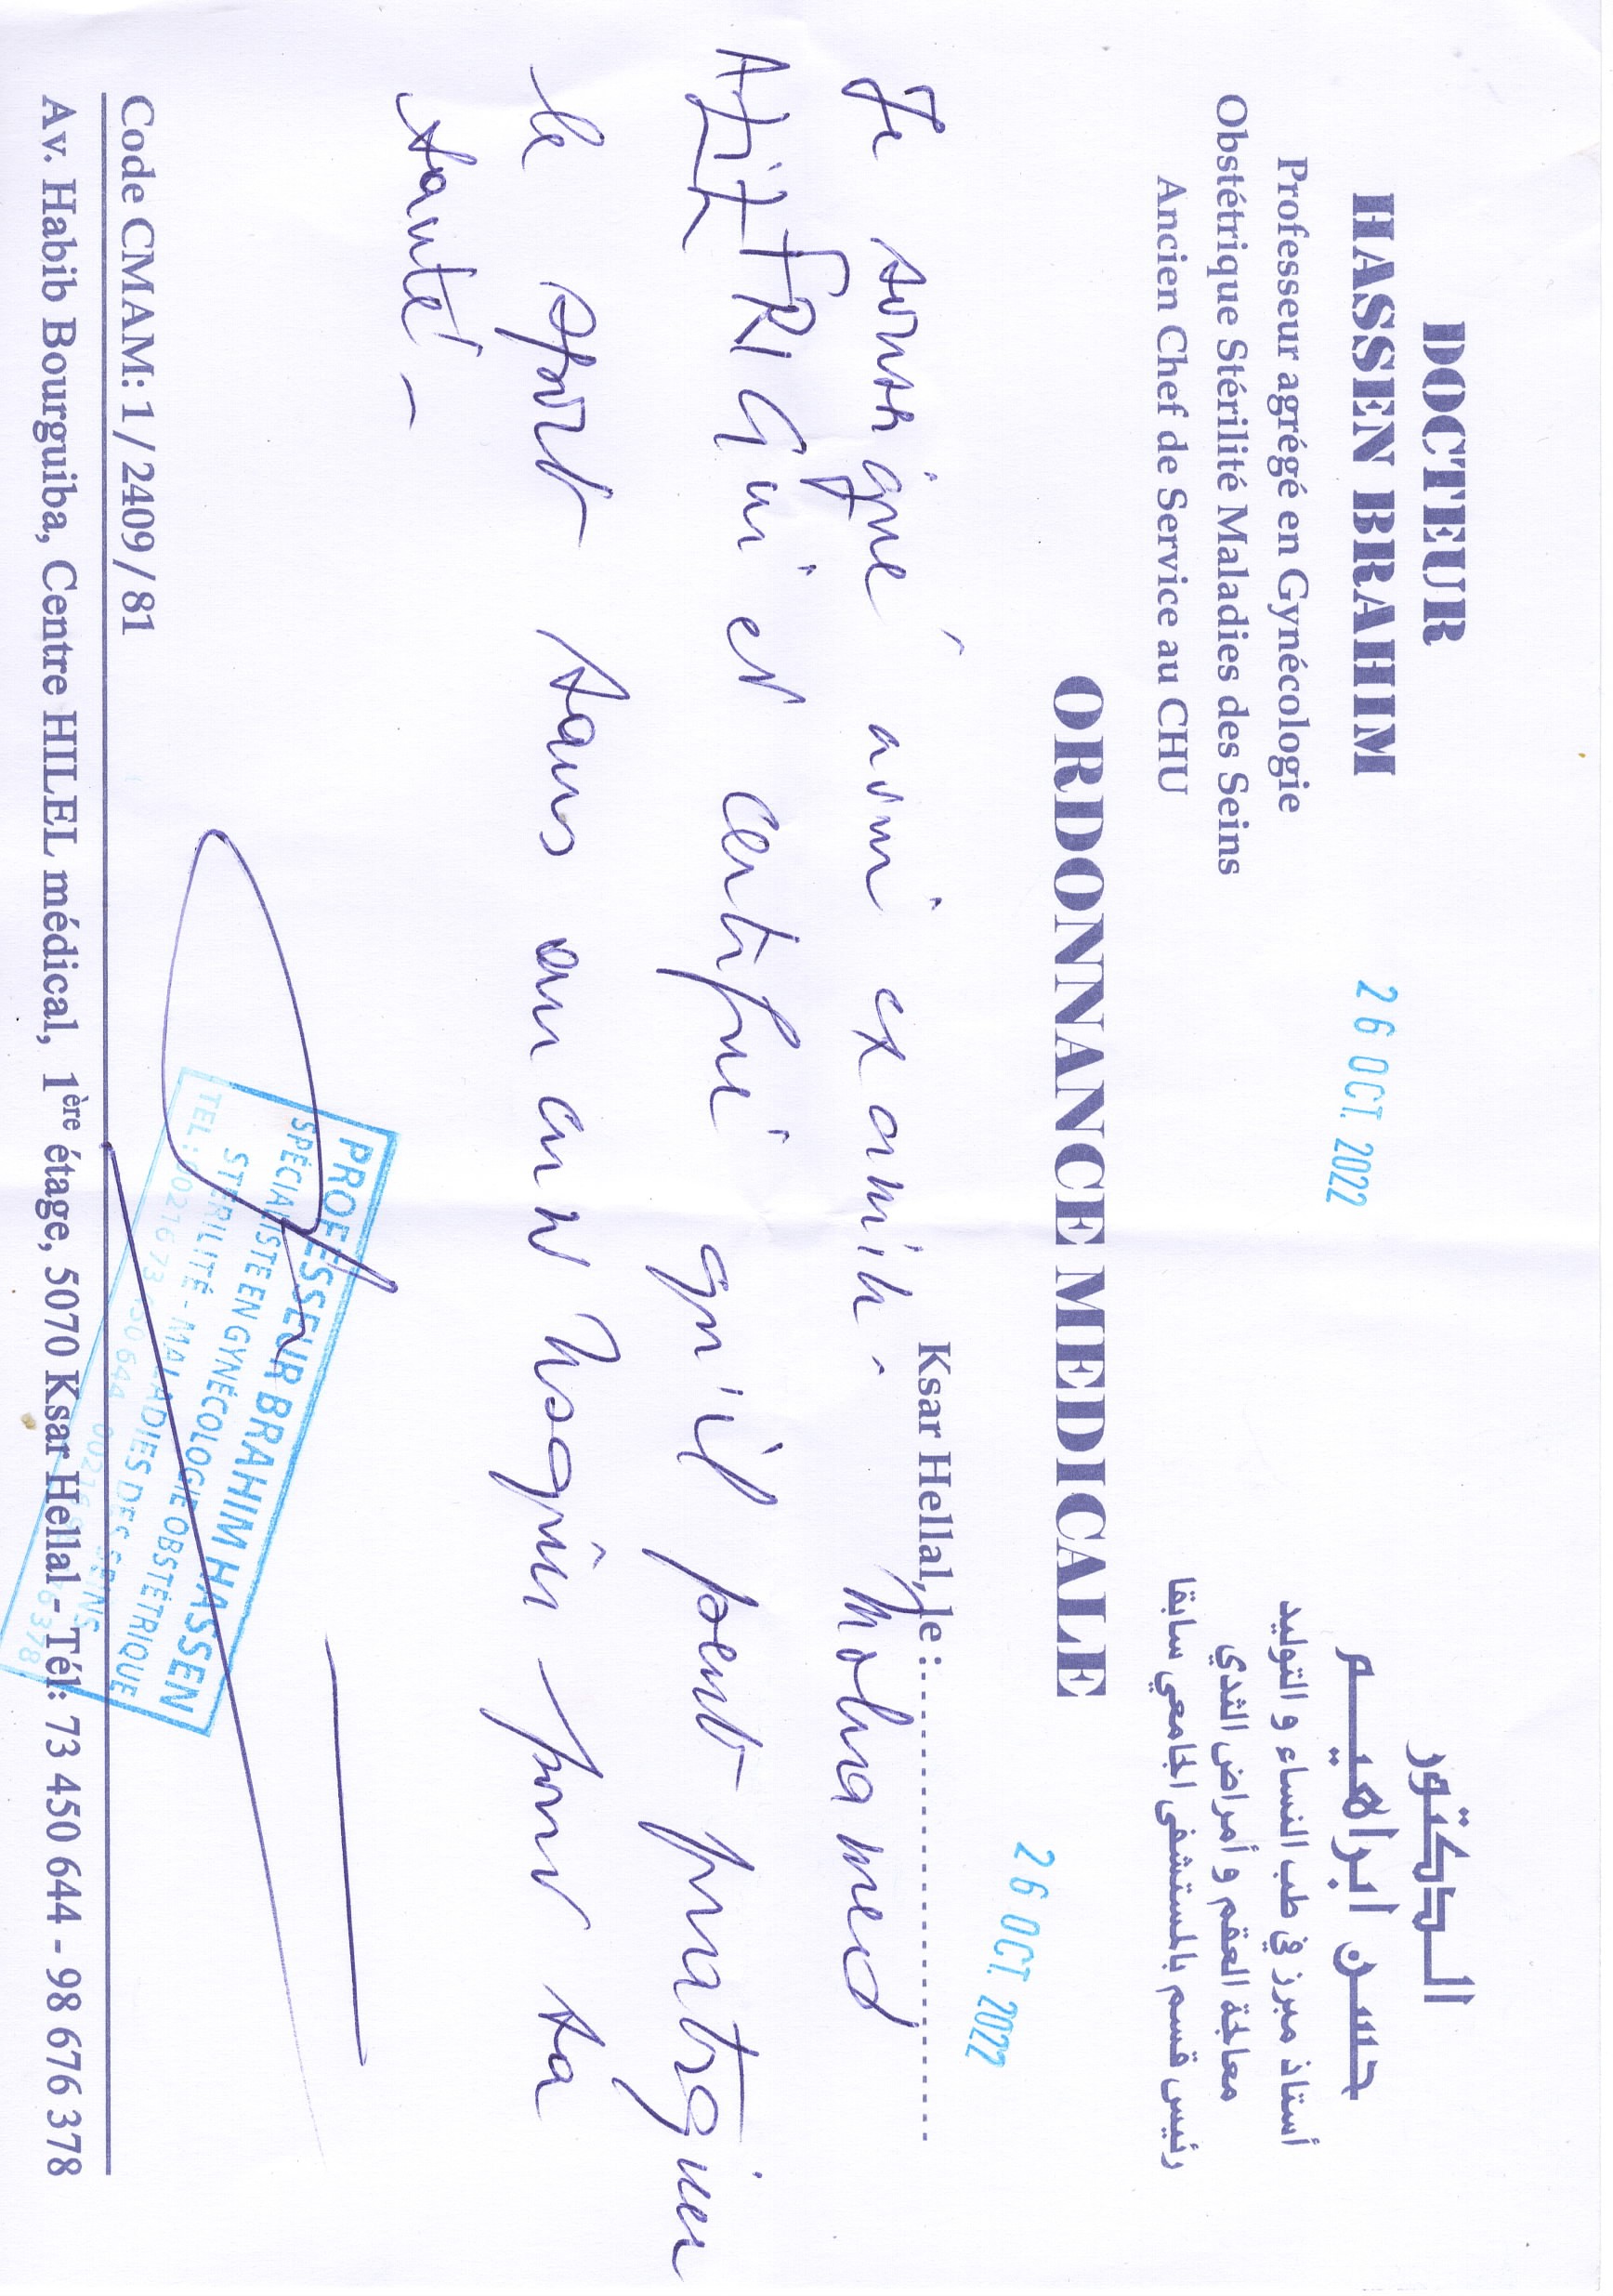 DOCTEUR
HASSEN BRAHIM
Professeur agrégé en Gynécologie
Obstétrique Stérilité Maladies des Seins
Ancien Chef de Service au CHU
26 OCT. 2022
الدكتور
حسن ابراهيم
أستاذ مبرز في طب النساء و التوليد
معالجة العقم و أمراض الثدي
رئيس قسم بالمستشفى الجامعي سابقا
ORDONNANCE MEDICALE
26 OCT. 2022
Ksar Hellal, le :
Je soussigné avoir examiné. Mohamed
AZIZ FRIGUI et certifie qu'il peut pratiquer
le sport sans aucun risque pour sa
santé -
PROFESSEUR BRAHIM HASSEN
SPÉCIALISTE EN GYNÉCOLOGIE OBSTÉTRIQUE
STÉRILITÉ - MALADIES DES SEINS
Code CMAM: 1/2409/81
Av. Habib Bourguiba, Centre HILEL médical, 1ère étage, 5070 Ksar Hellal - Tél: 73 450 644 - 98 676 378